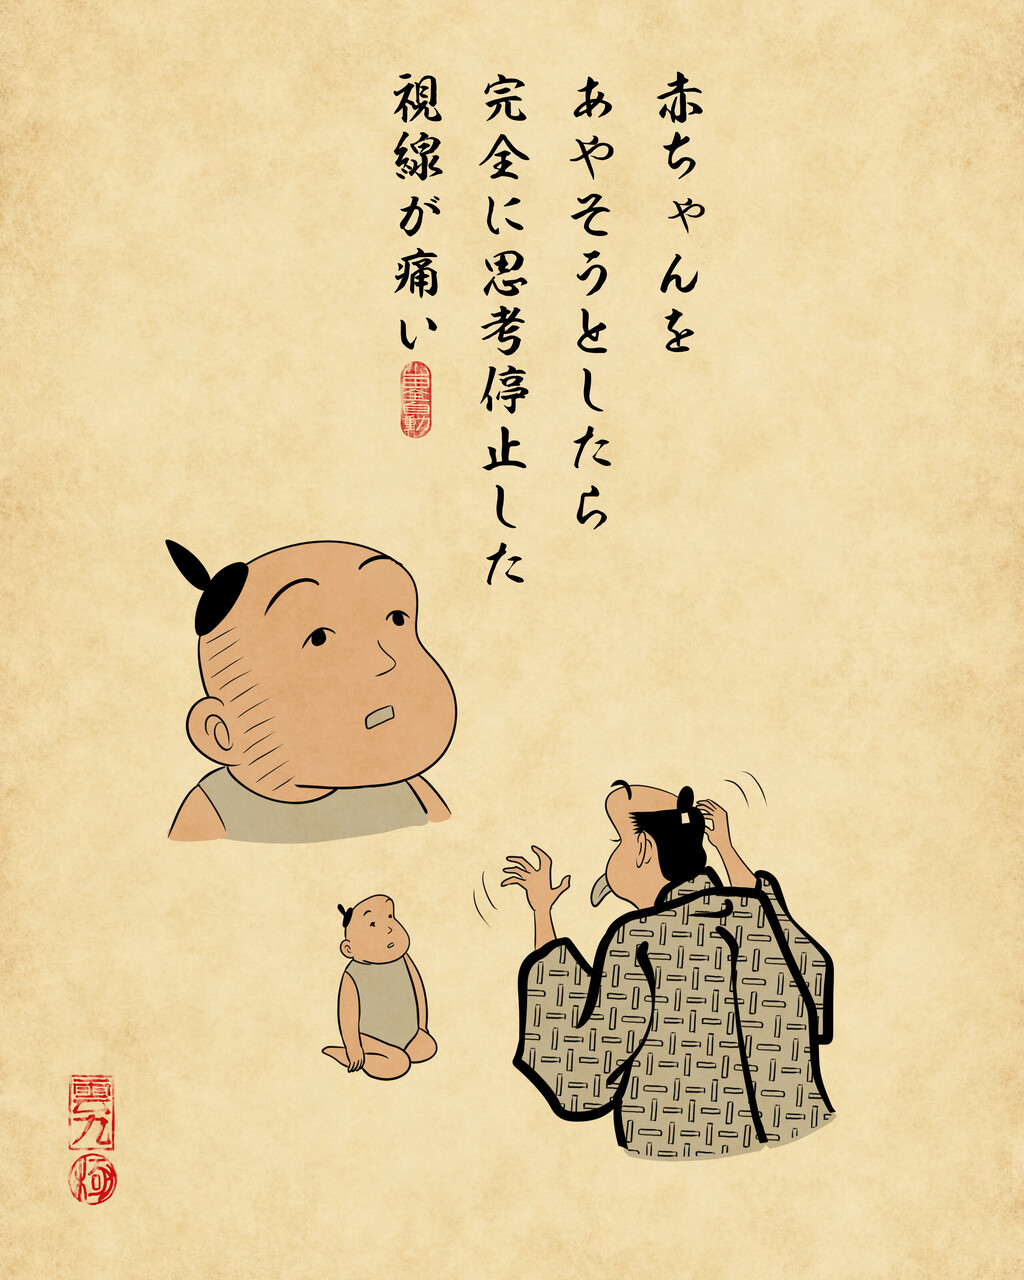 赤ちゃんを
あやそうとしたら
完全に思考停止した
視線が痛い